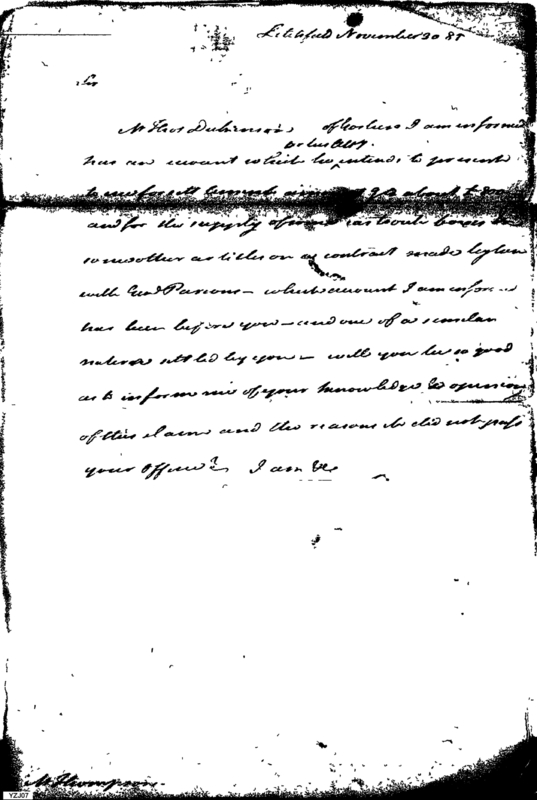 Litchfield November 30 85
Sir
Mr Thos Dickinson of Goshen I am informed
or his Atty
has an account which he intends to present
to me for settlement about
and for the supply of some
some other articles on a contract made by him
with Genl Parsons - which account I am inform
has been before you - and one of a similar
nature settled by you - will you be so good
as to inform me of your knowledge & opinion
of this claim and the reasons it did not pass
your Office? I am &c
Mr Thompson.
YZJ07